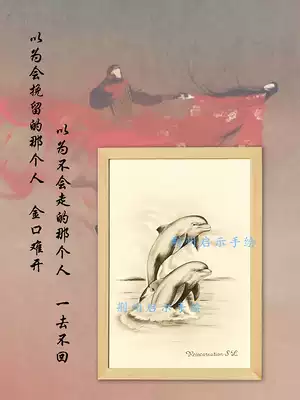 以为会挽留的那个人 金口难开
以为不会走的那个人 一去不回
启示手绘
启示手绘
Reincarnation S.L